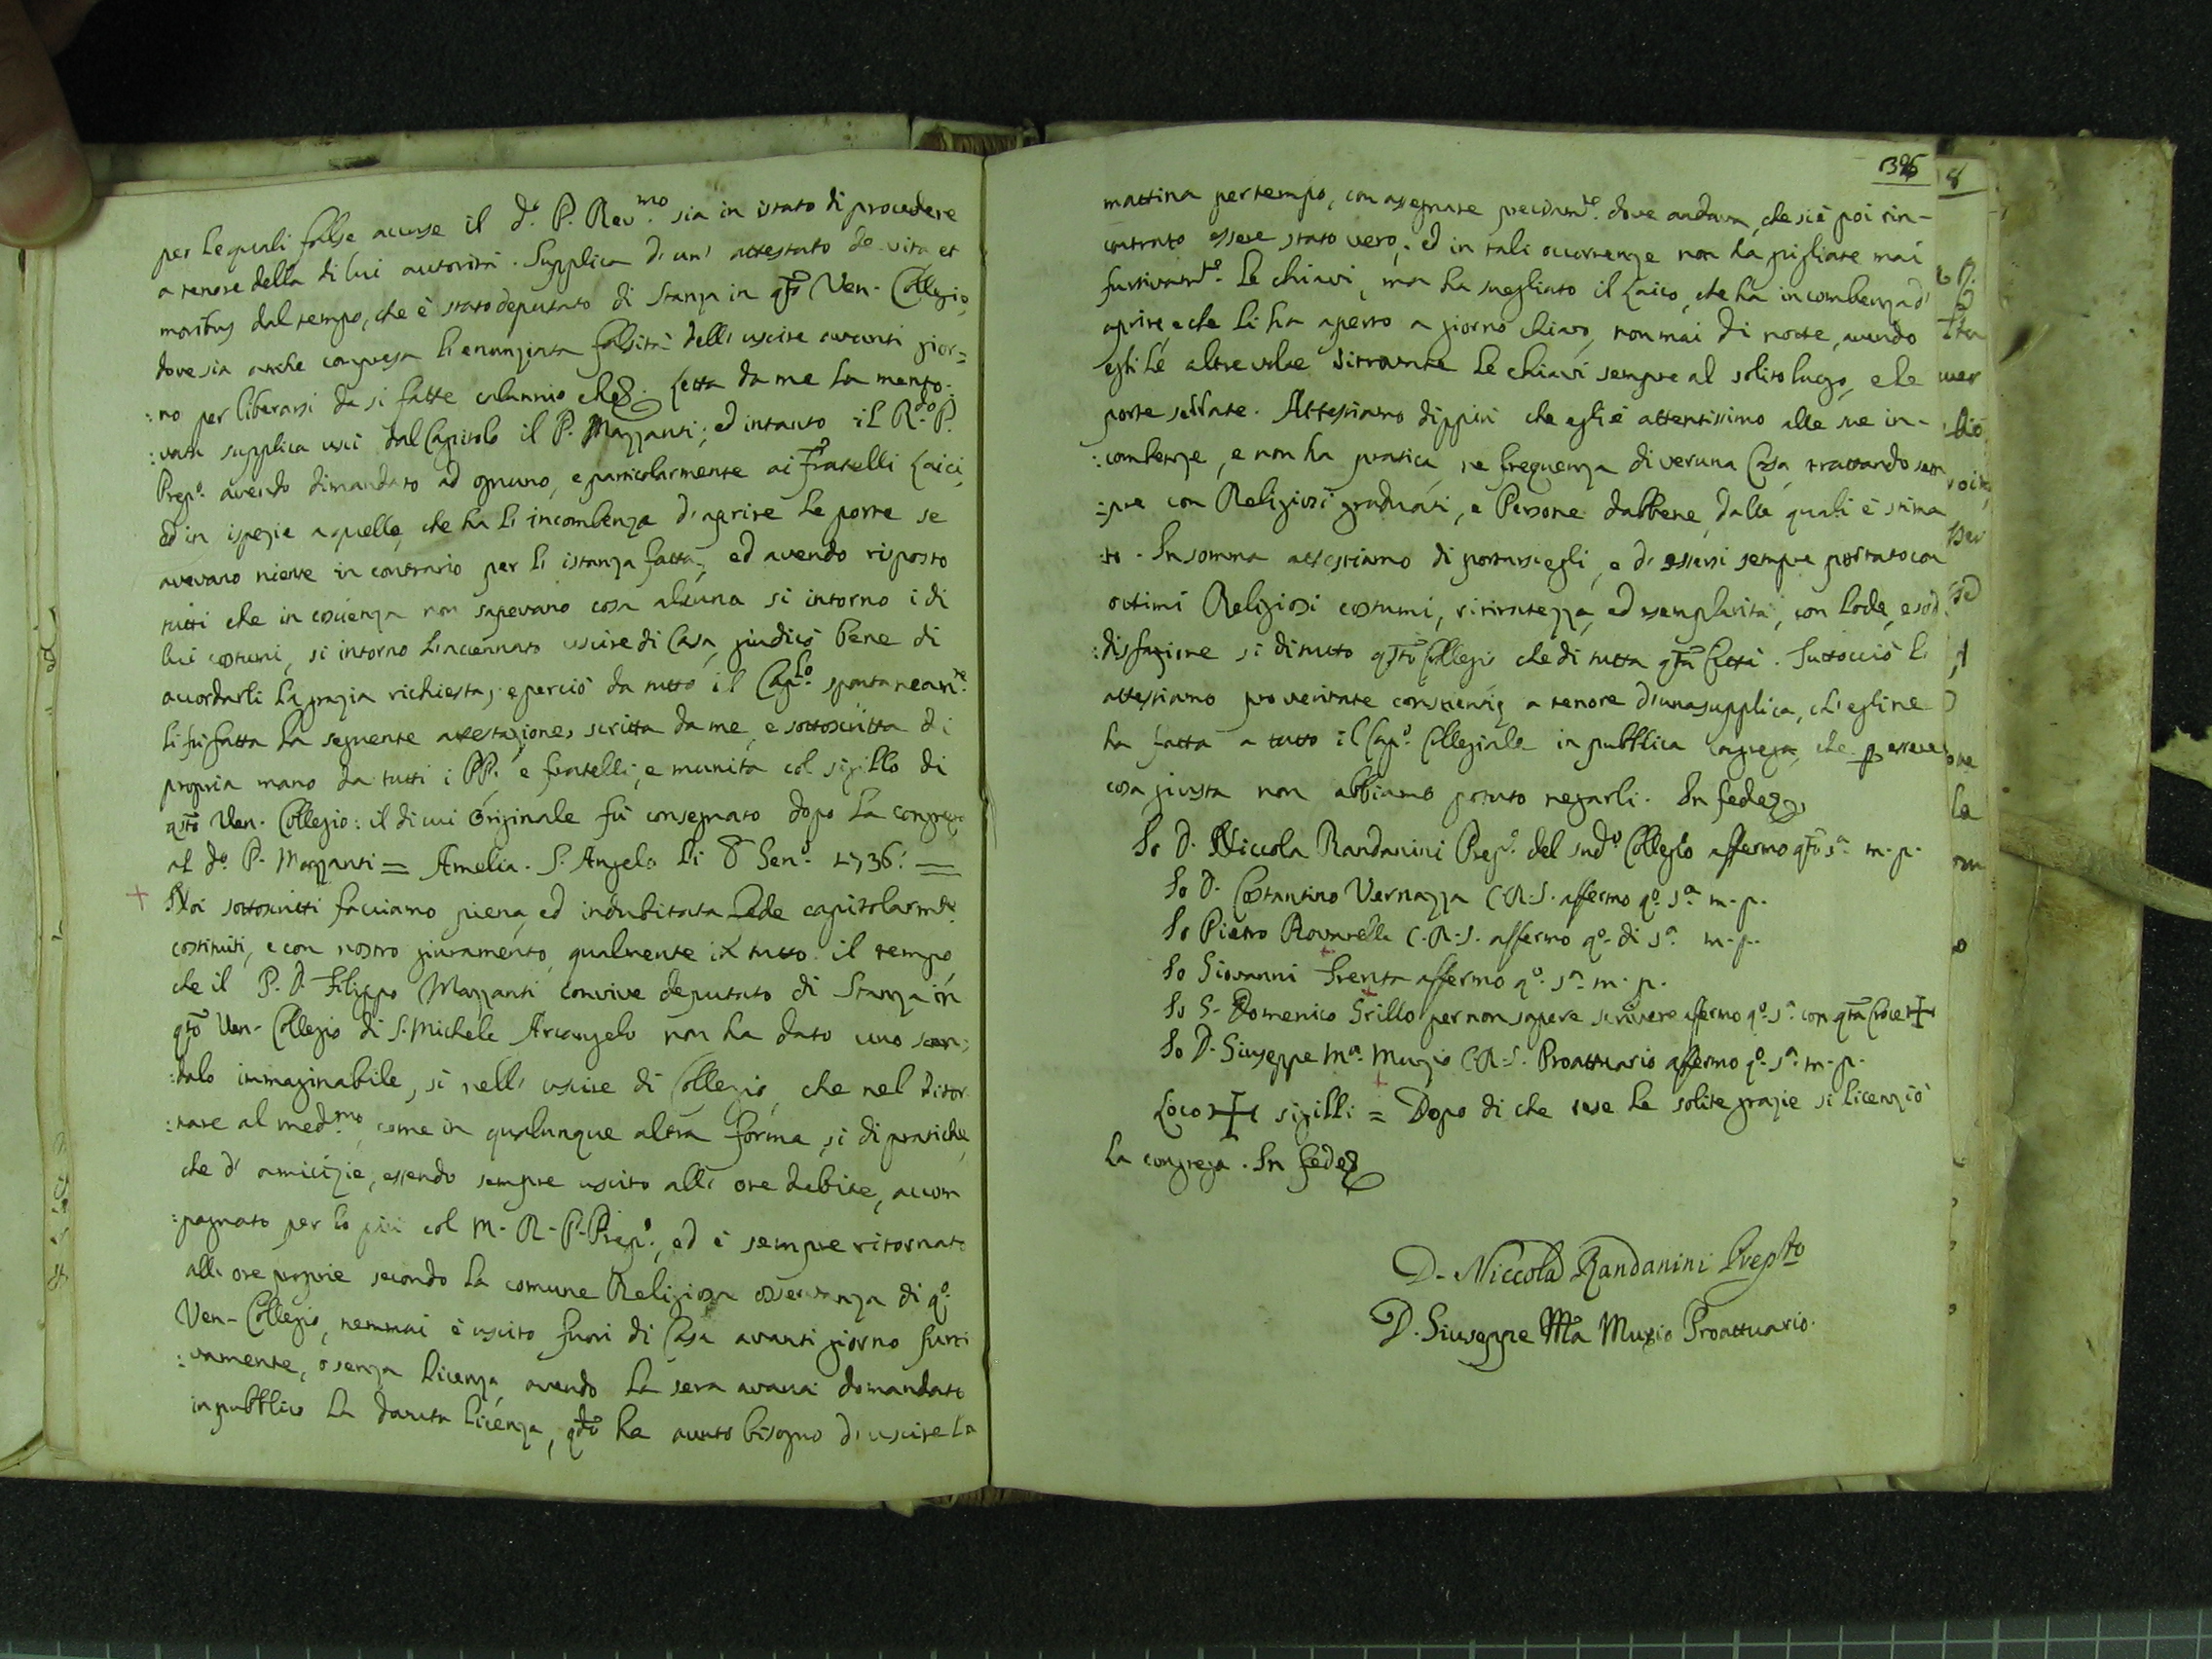 per le quali false accuse il d.º P. Rev.mo sia in istato di procedere
a tenore della di lui autorità. Supplica d'un' attestato de vita et
moribus dal tempo, che è stato deputato di stanza in q.sto Ven. Collegio,
dove sia anche compresa l'enunziata falsità dell' uscire avanti gior=
:no per liberarsi da si fatte calunnie che &. Letta da me la mento-
:vata supplica uscì dal Capitolo il P. Mazzanti; ed intanto il R.do P.
Prep.º avendo dimandato ad ognuno, e particolarmente ai fratelli Laici,
ed in ispezie a quello, che ha l'incombenza d'aprire le porte se
avevano niente in contrario per l'istanza fatta, ed avendo risposto
tutti che in coscienza non sapevano cosa alcuna si intorno i di
lui costumi, si intorno l'accennato uscire di Casa, giudicò bene di
accordarli la grazia richiesta; e perciò da tutto il Cap.lo spontaneam.te
li fu fatta la seguente attestazione, scritta da me, e sottoscritta di
propria mano da tutti i PP. e fratelli, e munita col sigillo di
q.sto Ven. Collegio: il di cui originale fù consegnato dopo la congrega
al d.º P. Mazzanti = Amelia. S. Angelo li 8 Gen.º 1736: =
+ Noi sottoscritti facciamo piena, ed indubitata fede capitolarm.te
costituiti, e con nostro giuramento, qualmente in tutto il tempo
che il P. D. Filippo Mazzanti convive deputato di stanza in
q.sto Ven. Collegio di S. Michele Arcangelo non ha dato uno scan:
:dalo immaginabile, si nell' uscire di Collegio, che nel ritor
:nare al med.mo, come in qualunque altra forma, si di pratiche,
che d' amicizie, essendo sempre uscito all' ore debite, accom
:pagnato per lo più col M. R. P. Prep.º, ed è sempre ritornato
all' ore proprie secondo la comune Religiosa osservanza di q.º
Ven. Collegio, nemmai è uscito fuori di Casa avanti giorno furti
:vamente, o senza licenza, avendo la sera avanti domandato
in pubblico la dovuta licenza, q.do ha avuto bisogno d'uscire la
396
mattina pertempo, con assegnare precisam.te dove andava, che si è poi rin-
contrato essere stato vero; ed in tali occorrenze non ha pigliate mai
furtivam.te le chiavi, ma ha svegliato il Laico, che ha incombenza d'
aprire, e che li ha aperto a giorno chiaro, non mai di notte, avendo
egli le altre volte ritrovate le chiavi sempre al solito luogo, e le
porte serrate. Attestiamo dippiù che egli è attentissimo alle sue in-
:combenze, e non ha pratica, ne frequenza di veruna Casa, trattando sem
:pre con Religiosi graduati, e Persone dabbene, dalle quali è stima
:to. In somma attestiamo di portarsi egli, e d' essersi sempre portato con
ottimi Religiosi costumi, ritiratezza, ed esemplarità, con lode, e sod
:disfazione si di tutto q.sto Collegio che di tutta q.sta Città. Tuttociò l'
attestiamo pro veritate conscientiæ a tenore d'una supplica, ch' egli ne
ha fatta a tutto il Cap.º Collegiale in pubblica congrega, che p essere
cosa giusta non abbiamo potuto negarli. In fede &
Io D. Niccola Randanini Prep.º del sud.º Collegio affermo q.sto s.ª m. p.
Io D. Costantino Vernazza C.R.S. affermo q.º s.ª m. p.
Io Pietro Rovarelli C.R.S. affermo q.º di s.ª m. p.
Io Giovanni Trenta affermo q.º s.ª m. p.
Io S. Domenico Grillo per non sapere scrivere affermo q.º s.ª con q.sta Croce +
Io D. Giuseppe M.ª Muzio C.R.S. Proattuario affermo q.º s.ª m. p.
Loco + sigilli = Dopo di che rese le solite grazie si licenziò
la congrega. In fede &
D. Niccola Randanini Prep.to
D. Giuseppe M.a Muzio Proattuario.